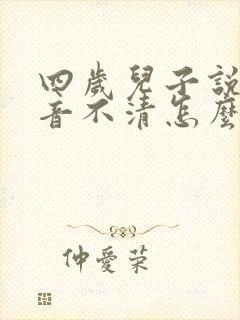 四歲兒子說
音不清怎麼
仲愛荣